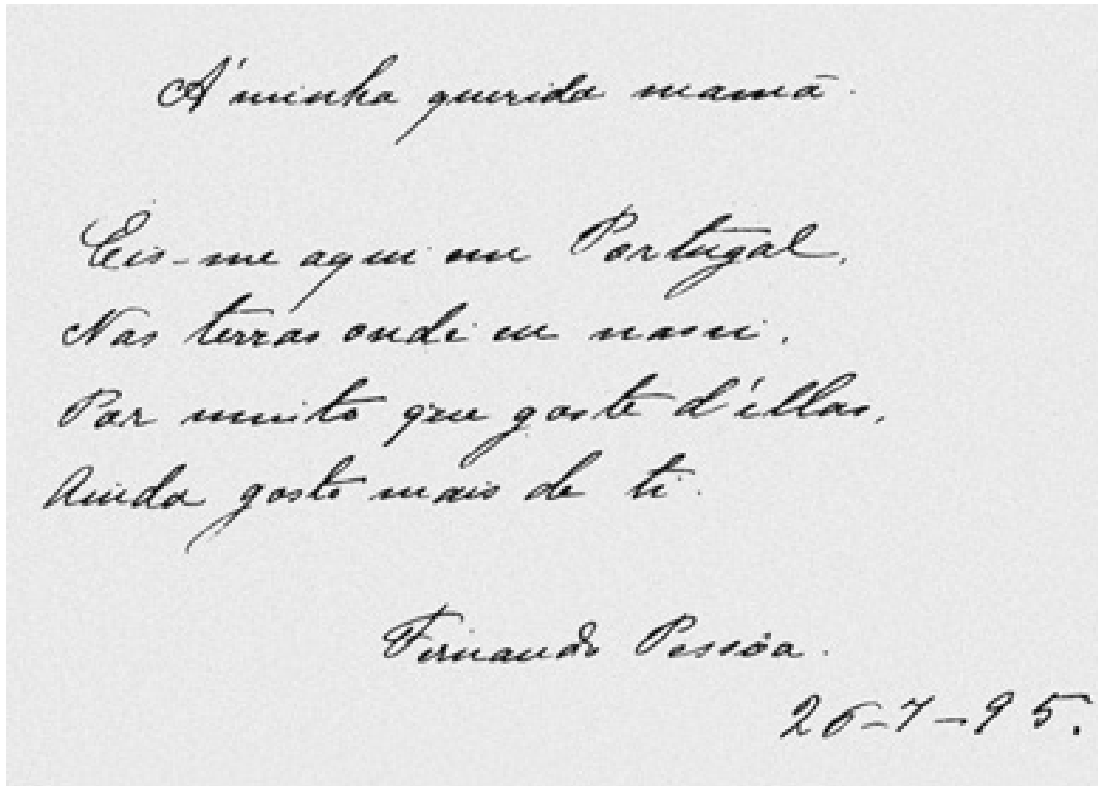 Á minha querida mamã.
Eis-me aqui em Portugal,
Nas terras onde eu nasci.
Por muito que goste d'ellas,
Ainda gosto mais de ti.
Fernando Pessôa.
26-7-95.